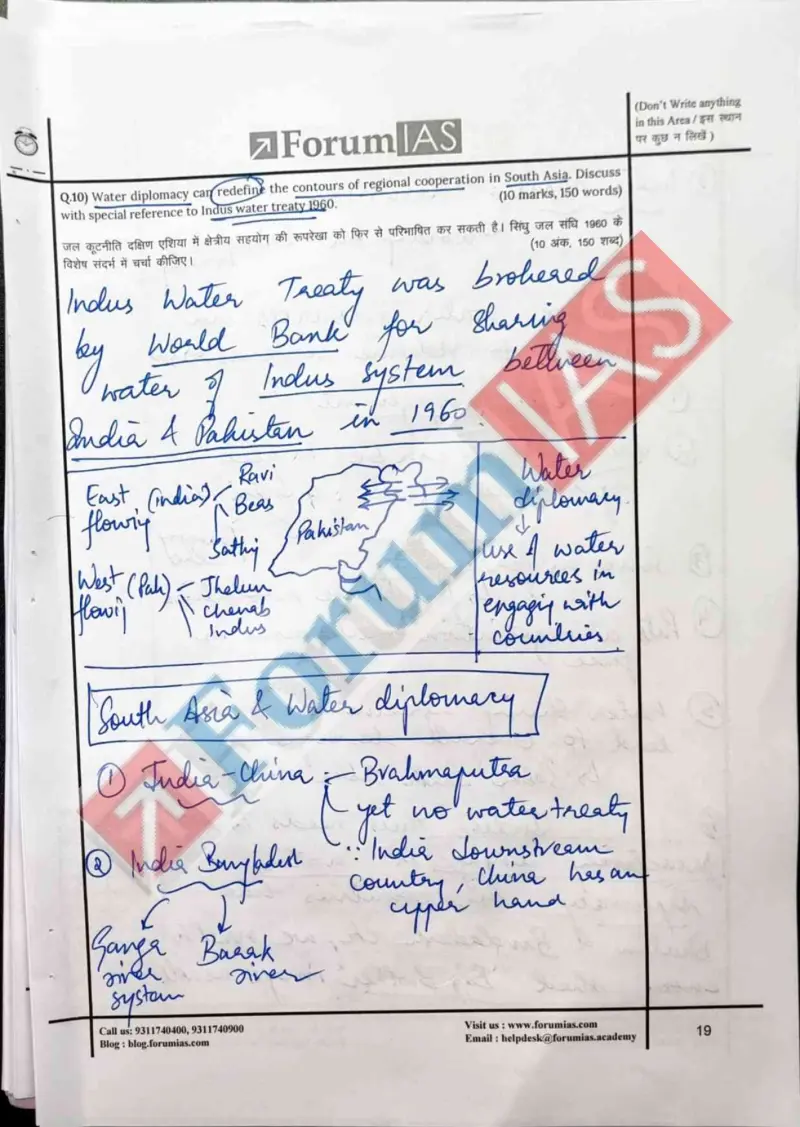 (Don't Write anything
in this Area / इस स्थान
पर कुछ न लिखें )
ForumIAS
Q.10) Water diplomacy can redefine the contours of regional cooperation in South Asia. Discuss
with special reference to Indus water treaty 1960.
(10 marks, 150 words)
जल कूटनीति दक्षिण एशिया में क्षेत्रीय सहयोग की रूपरेखा को फिर से परिभाषित कर सकती है। सिंधु जल संधि 1960 के
विशेष संदर्भ में चर्चा कीजिए।
(10 अंक, 150 शब्द)
Indus Water Treaty was brokered
by World Bank for sharing
water of Indus system between
India & Pakistan in 1960.
East (india)
flowing
Ravi
Beas
Satluj
West (Pak)
flowing
Jhelum
Chenab
Indus
Pakistan
Water
diplomacy
use of water
resources in
engaging with
countries.
South Asia & Water diplomacy
① India-China :- Brahmaputra
yet no water treaty
∵ India downstream
country, China has an
upper hand
② India Bangladesh
Ganga
river
system
Barak
river
ForumIAS
Call us: 9311740400, 9311740900
Blog : blog.forumias.com
Visit us : www.forumias.com
Email : helpdesk@forumias.academy
19